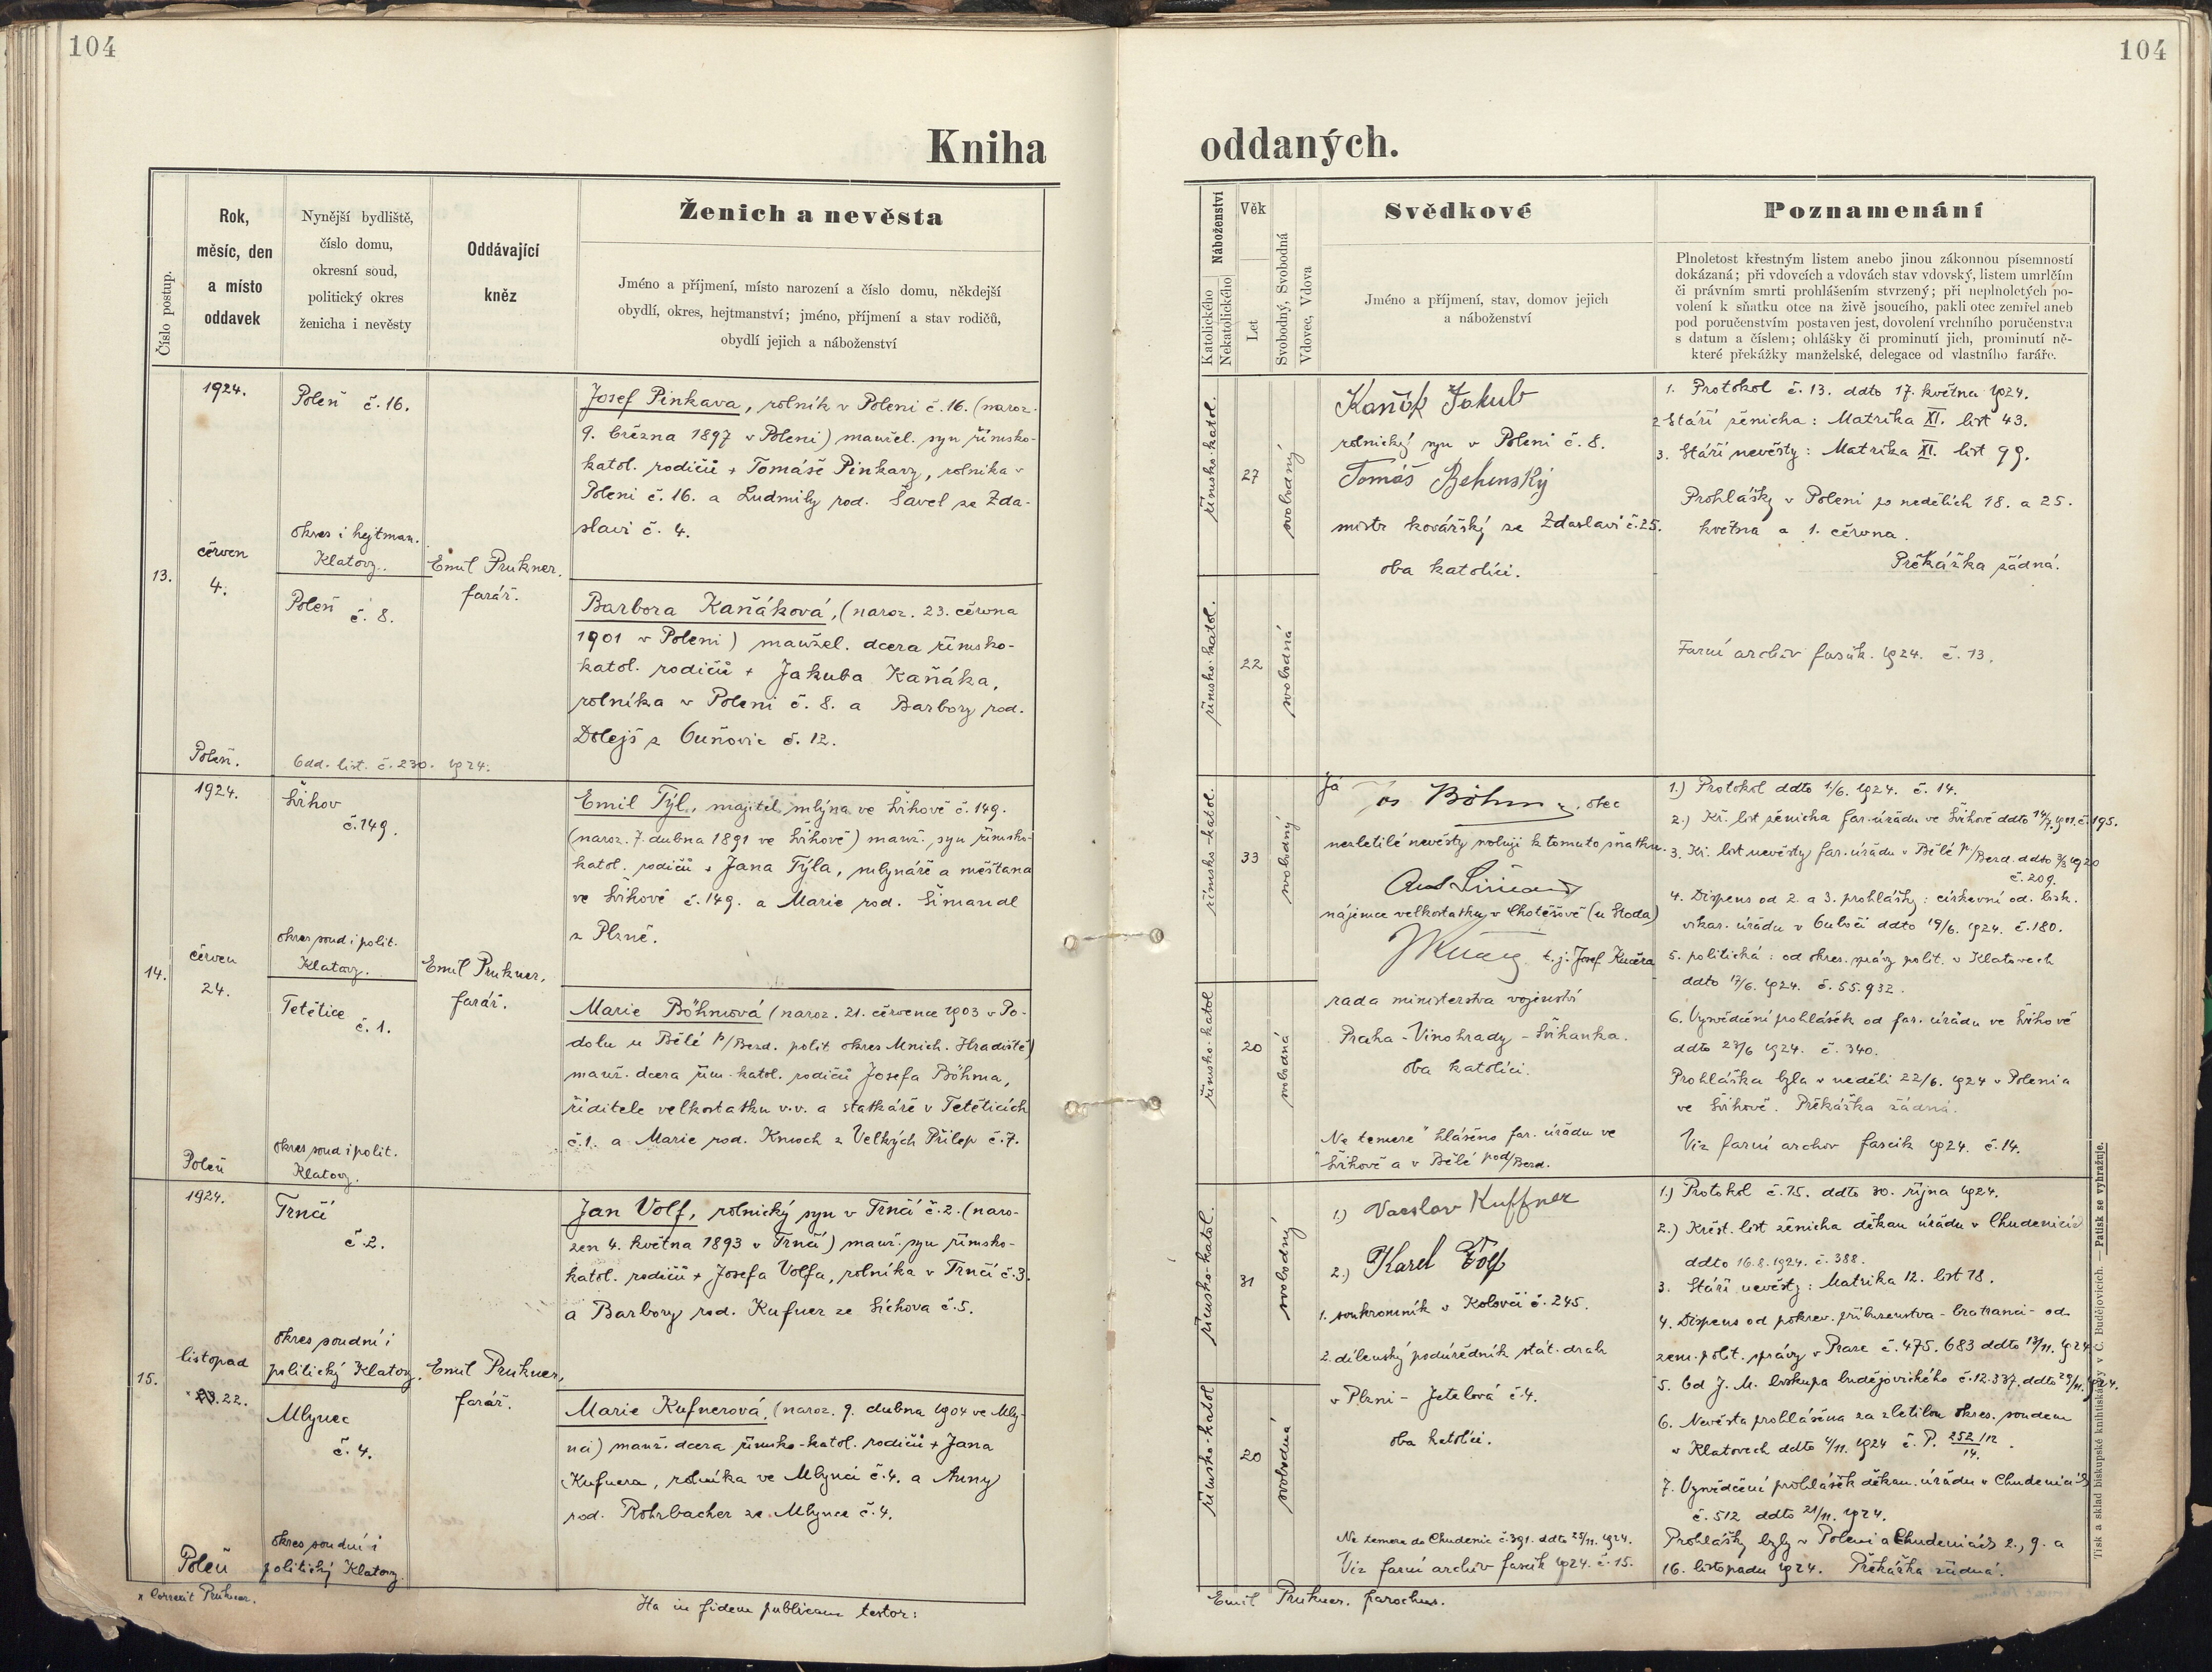 104
104
Kniha
oddaných.
Číslo postup.
Rok,
měsíc, den
a místo
oddavek
Nynější bydliště,
číslo domu,
okresní soud,
politický okres
ženicha i nevěsty
Oddávající
kněz
Ženich a nevěsta
Jméno a příjmení, místo narození a číslo domu, někdejší
obydlí, okres, hejtmanství; jméno, příjmení a stav rodičů,
obydlí jejich a náboženství
Náboženství
Katolického
Nekatolického
Věk
Let
Svobodný, Svobodná
Vdovec, Vdova
Svědkové
Jméno a příjmení, stav, domov jejich
a náboženství
Poznamenání
Plnoletost křestným listem anebo jinou zákonnou písemností
dokázaná; při vdovcích a vdovách stav vdovský, listem umrlčím
či právním smrti prohlášením stvrzený; při neplnoletých po-
volení k sňatku otce na živě jsoucího, pakli otec zemřel aneb
pod poručenstvím postaven jest, dovolení vrchního poručenstva
s datum a číslem; ohlášky či prominutí jich, prominutí ně-
které překážky manželské, delegace od vlastního faráře.
13.
1924.
červen
4.
Poleň.
Poleň č. 16.
okres i hejtman.
Klatovy.
Poleň č. 8.
Odd. list. č. 230. 1924.
Emil Prukner,
farář.
Josef Pinkava, rolník v Poleni č. 16. (naroz.
9. března 1897 v Poleni) manžel. syn římsko-
katol. rodičů + Tomáše Pinkavy, rolníka v
Poleni č. 16. a Ludmily rod. Šavel ze Zda-
slavi č. 4.
Barbora Kaňáková, (naroz. 23. června
1901 v Poleni) manžel. dcera římsko-
katol. rodičů + Jakuba Kaňáka,
rolníka v Poleni č. 8. a Barbory rod.
Dolejš z Ouňovic č. 12.
římsko-katol.
27
svobodný
římsko-katol.
22
svobodná
Kaňák Jakub
rolnický syn v Poleni č. 8.
Tomáš Behenský
mistr kovářský ze Zdaslavi č. 25.
oba katolíci.
1. Protokol č. 13. ddto 17. května 1924.
2. Stáří ženicha: Matrika XI. list 43.
3. Stáří nevěsty: Matrika XI. list 99.
Prohlášky v Poleni po nedělích 18. a 25.
května a 1. června.
Překážka žádná.
Farní archiv fascik. 1924. č. 13.
14.
1924.
červen
24.
Poleň
Švihov
č. 149.
okres soud i polit.
Klatovy.
Tetětice
č. 1.
okres soud i polit.
Klatovy.
Emil Prukner,
farář.
Emil Týl, majitel mlýna ve Švihově č. 149.
(naroz. 7. dubna 1891 ve Švihově) manž. syn římsko-
katol. rodičů + Jana Týla, mlynáře a měšťana
ve Švihově č. 149. a Marie rod. Šimandl
z Plzně.
Marie Böhmová (naroz. 21. července 1903 v Po-
dolu u Bělé p/Bezd. polit okres Mnich. Hradiště)
manž. dcera řím-katol. rodičů Josefa Böhma,
ředitele velkostatku v.v. a statkáře v Tetěticích
č. 1. a Marie rod. Knoch z Velkých Přílep č. 7.
římsko-katol.
33
svobodný
římsko-katol
20
svobodná
Já Jos Böhm, otec
nezletilé nevěsty svoluji k tomuto sňatku.
nájemce velkostatku v Chotěšově (u Stoda)
t. j. Josef Kučera
rada ministerstva vojenství
Praha-Vinohrady - Švihanka.
oba katolíci.
"Ne temere" hlášeno far. úřadu ve
Švihově a v Bělé pod/Bezd.
1.) Protokol ddto 1/6. 1924. č. 14.
2.) Kř. list ženicha far. úřadu ve Švihově ddto 14/7. 1911. č. 195.
3. Kř. list nevěsty far. úřadu v Bělé p/Bezd. ddto 3/3 1920
č. 209.
4. Dispens od 2. a 3. prohlášky: církevní od bisk.
vikar. úřadu v Ouboči ddto 19/6. 1924. č. 180.
5. politická: od okres. správy polit. v Klatovech
ddto 17/6. 1924. č. 55.932.
6. Vysvědčení prohlášek od far. úřadu ve Švihově
ddto 23/6 1924. č. 340.
Prohláška byla v neděli 22/6. 1924 v Poleni a
ve Švihově. Překážka žádná.
Viz farní archiv fascik 1924. č. 14.
15.
1924.
listopad
× 22.
Poleň
Trnčí
č. 2.
okres soudní i
politický Klatovy.
Mlýnec
č. 4.
okres soudní i
politický Klatovy.
Emil Prukner,
farář.
Jan Volf, rolnický syn v Trnčí č. 2. (naro-
zen 4. května 1893 v Trnčí) manž. syn římsko-
katol. rodičů + Josefa Volfa, rolníka v Trnčí č. 3.
a Barbory rod. Kufner ze Slíchova č. 5.
Marie Kufnerová, (naroz. 9. dubna 1904 ve Mlý-
nci) manž. dcera římsko-katol. rodičů + Jana
Kufnera, rolníka ve Mlýnci č. 4. a Anny
rod. Rohrbacher ze Mlýnce č. 4.
římsko-katol.
31
svobodný
římsko-katol
20
svobodná
1.) Vacslav Kuffner
2.) Karel Volf
1. soukromník v Kolovči č. 245.
2. dílenský podúředník stát. drah
v Plzni - Jetelová č. 4.
oba katolíci.
Ne temere do Chudenic č. 391. ddto 25/11. 1924.
Viz farní archiv fascik 1924. č. 15.
1.) Protokol č. 15. ddto 30. října 1924.
2.) Křest. list ženicha děkan úřadu v Chudenicích
ddto 16.8.1924. č. 388.
3. Stáří nevěsty: Matrika 12. list 18.
4. Dispens od pokrev. příbuzenstva - bratranci - od
zem. polit. správy v Praze č. 475.683 ddto 13/11. 1924
5. Od J. M. biskupa budějovického č. 12.337. ddto 29/11. 1924.
6. Nevěsta prohlášena za zletilou okres. soudem
v Klatovech ddto 4/11. 1924 č. P. 252/12 / 14.
7. Vysvědčení prohlášek děkan. úřadu v Chudenicích
č. 512 ddto 21/11. 1924.
Prohlášky byly v Poleni a Chudenicích 2., 9. a
16. listopadu 1924. Překážka žádná.
× Correxit Prukner.
Ita in fidem publicam testor:
Emil Prukner. parochus.
Tisk a sklad biskupské knihtiskárny v Č. Budějovicích. — Patisk se vyhražuje.